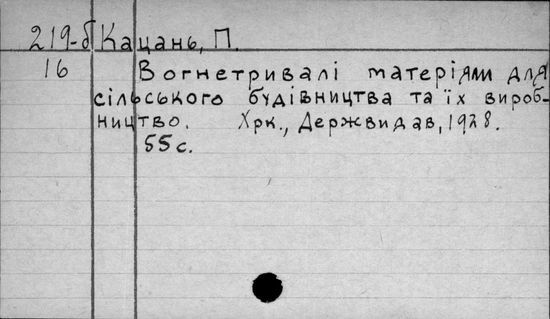 219-б Кацань, П.
16 Вогнетривалі матеріями для
сільського будівництва та їх вироб-
ництво. Хрк., Державидав, 1928.
55 с.